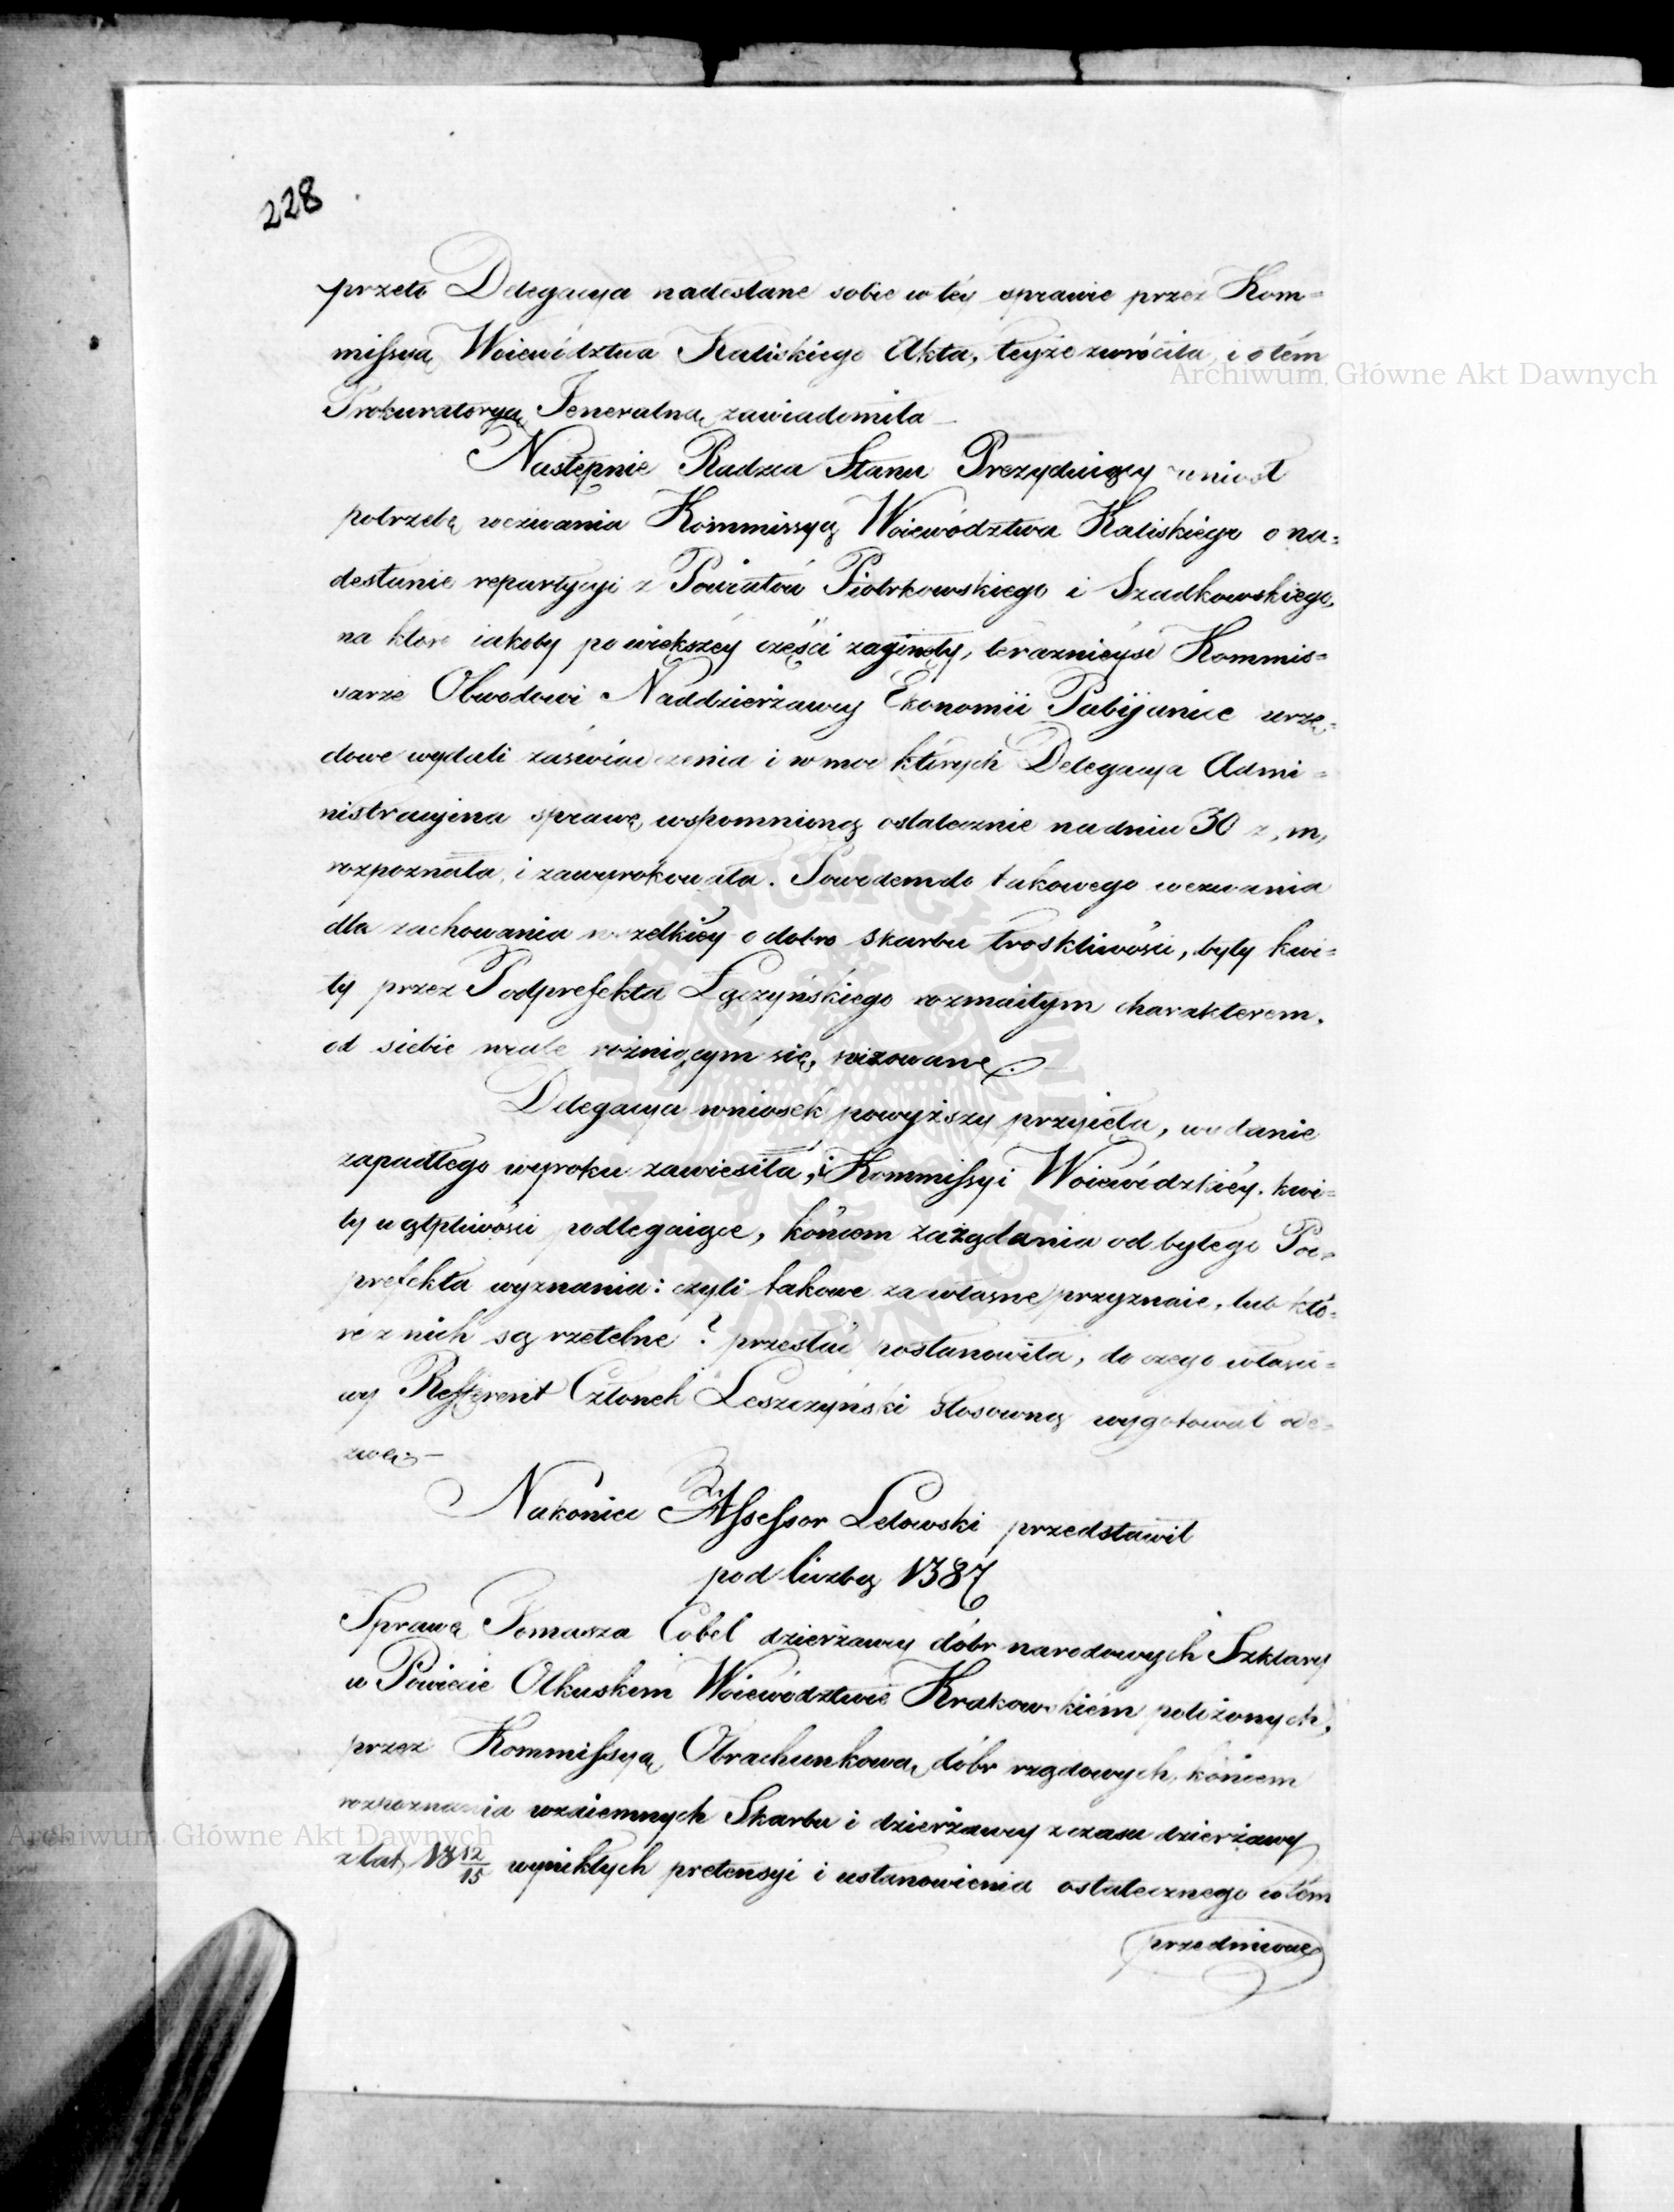 228
przeto Delegacya nadesłane sobie w téy sprawie przez Kom=
missyą Woiewództwa Kaliskiego Akta, teyże zwróciła i o tém
Prokuratoryą Jeneralną zawiadomiła _
Następnie Radzca Stanu Prezyduiący wniosł
potrzebę wezwania Kommissyą Woiewództwa Kaliskiego o na=
desłanie repartycyi z Powiatów Piotrkowskiego i Szadkowskiego,
na ktore iakoby po większéy części zaginęły, teraznieysi Kommis=
sarze Obwodowi Naddzierżawcy Ekonomii Pabijanice urzę=
dowe wydali zaświadczenia i w moc których Delegacya Admi=
nistracyjna sprawę wspomnioną ostatecznie na dniu 30 z, m,
rozpoznała, i zawyrokowała. Powodem do takowego wezwania
dla zachowania wszelkiéy o dobro skarbu troskliwości, były kwi=
ty przez Podprefekta Łączyńskiego rozmaitym charakterem,
od siebie wcale rożniącym się, wizowane.
Delegacya wniosek powyższy przyięła, wydanie
zapadłego wyroku zawiesiła, i Kommissyi Woiewódzkiéy kwi=
ty wątpliwości podlegaiące, końcem zażądania od byłego Po=
prefekta wyznania: czyli takowe za własne przyznaie, lub któ=
re z nich są rzetelne? przesłać postanowiła, do czego właści=
wy Refferent Członek Leszczyński stosowną wygotował ode=
zwę; –
Nakoniec Assessor Letowski przedstawił
pod liczbą 1387
Sprawę Tomasza Cobel dzierżawcy dóbr narodowych Szklary
w Powiecie Olkuskim Woiewództwie Krakowskiém położonych,
przez Kommissyą Obrachunkową dóbr rządowych, końcem
rozpoznania wzaiemnych Skarbu i dzierżawcy z czasu dzierżawy
z lat 18 12/15 wynikłych pretensyi i ustanowienia ostatecznego w tém
przedmiocie
Archiwum Główne Akt Dawnych
Archiwum Główne Akt Dawnych
ARCHIWUM GŁÓWNE AKT DAWNYCH